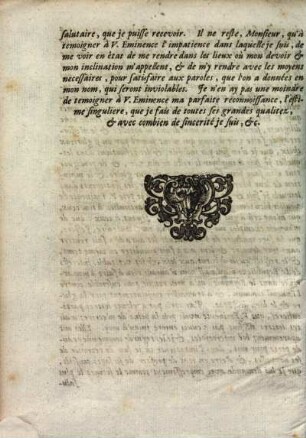 salutaire, que je puisse recevoir. Il ne reste, Monsieur, qu'à
temoigner à V. Eminence l'impatience dans laquelle je suis, de
me voir en état de me rendre dans les lieux où mon devoir &
mon inclination m'appellent, & de m'y rendre avec les moyens
necessaires, pour satisfaire aux paroles, que l'on a données en
mon nom, qui seront inviolables. Je n'en ay pas une moindre
de temoigner à V. Eminence ma parfaite reconnoissance, l'esti-
me singuliere, que je fais de toutes ses grandes qualitez,
& avec combien de sincerité je suis, &c.